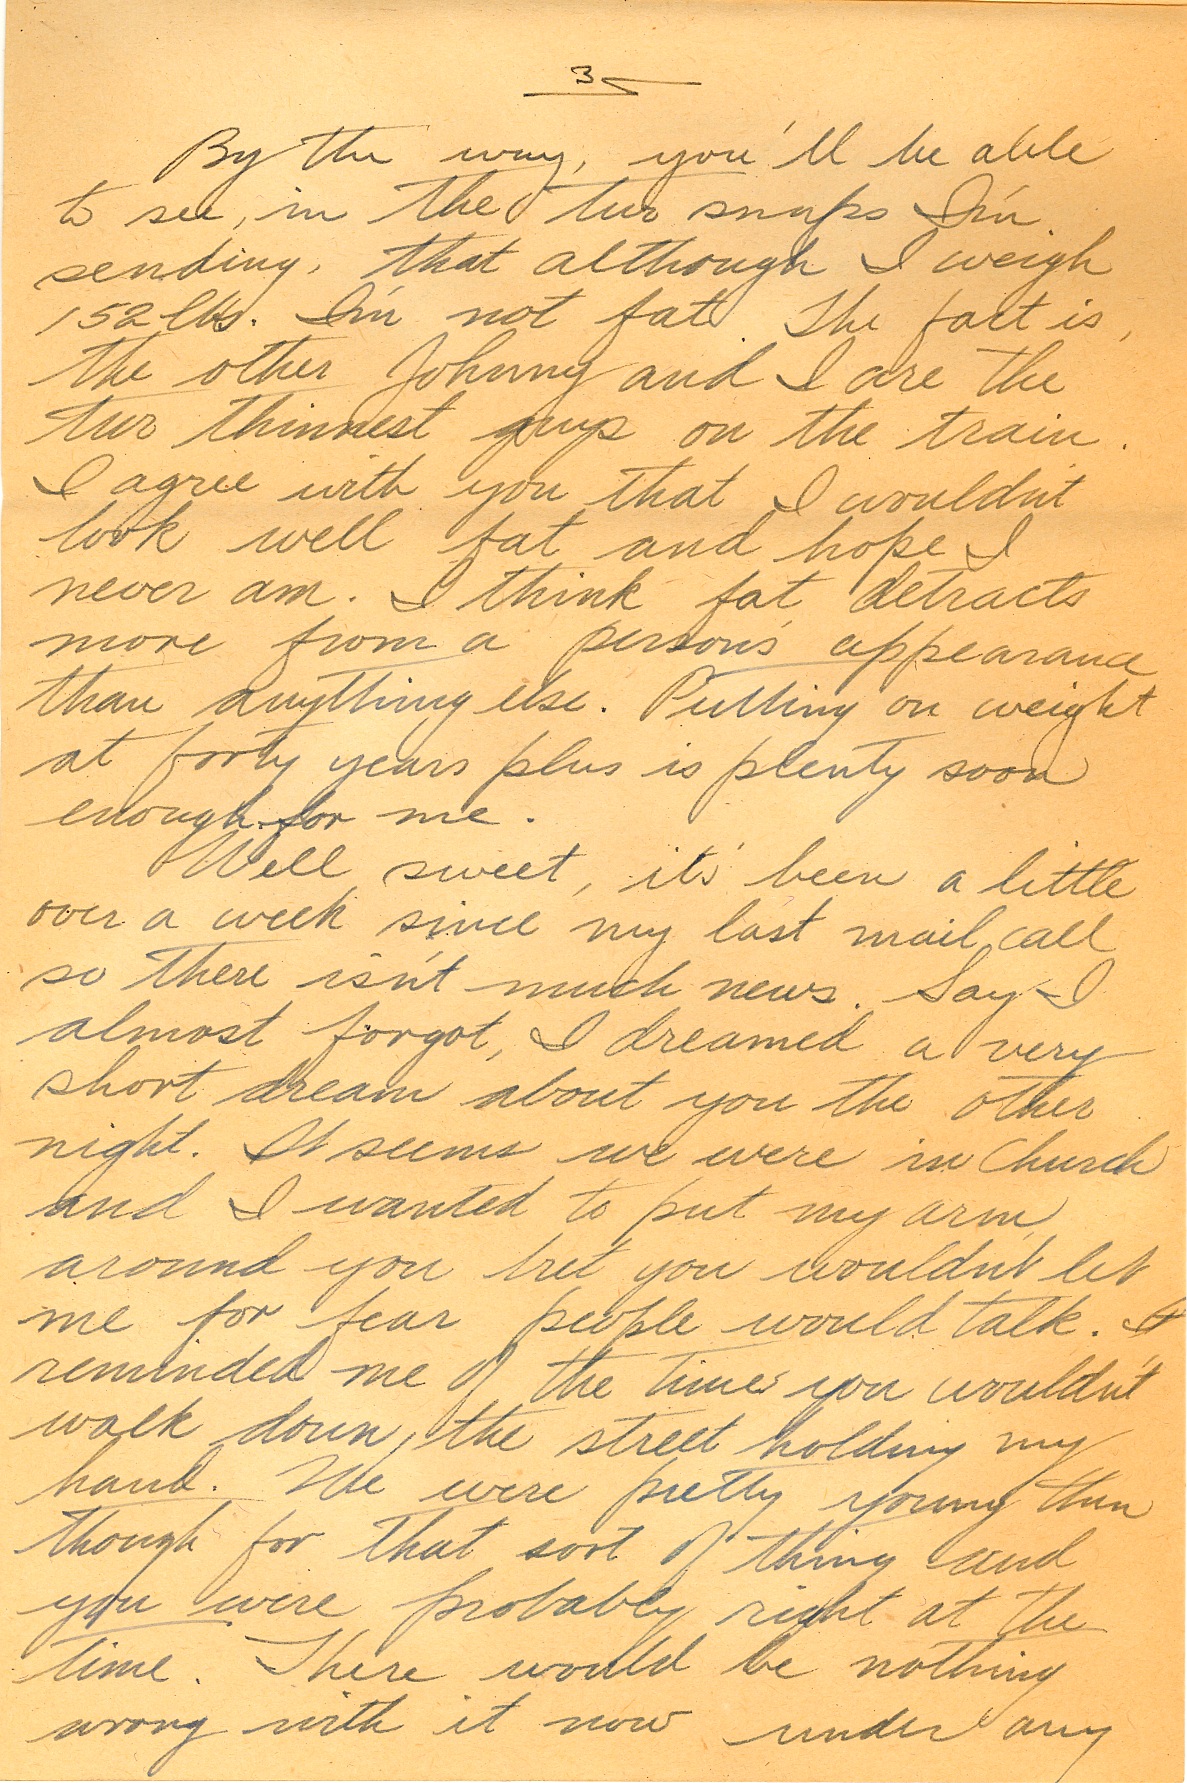 3
By the way, you'll be able
to see, in the two snaps I'm
sending, that although I weigh
152 lbs. I'm not fat. The fact is,
the other Johnny and I are the
two thinnest guys on the train.
I agree with you that I wouldn't
look well fat and hope I
never am. I think fat detracts
more from a person's appearance
than anything else. Putting on weight
at forty years plus is plenty soon
enough for me.
Well sweet, it's been a little
over a week since my last mail call
so there isn't much news. Say I
almost forgot, I dreamed a very
short dream about you the other
night. It seems we were in Church
and I wanted to put my arm
around you but you wouldn't let
me for fear people would talk. It
reminded me of the times you wouldn't
walk down the street holding my
hand. We were pretty young then
though for that sort of thing and
you were probably right at the
time. There would be nothing
wrong with it now under any